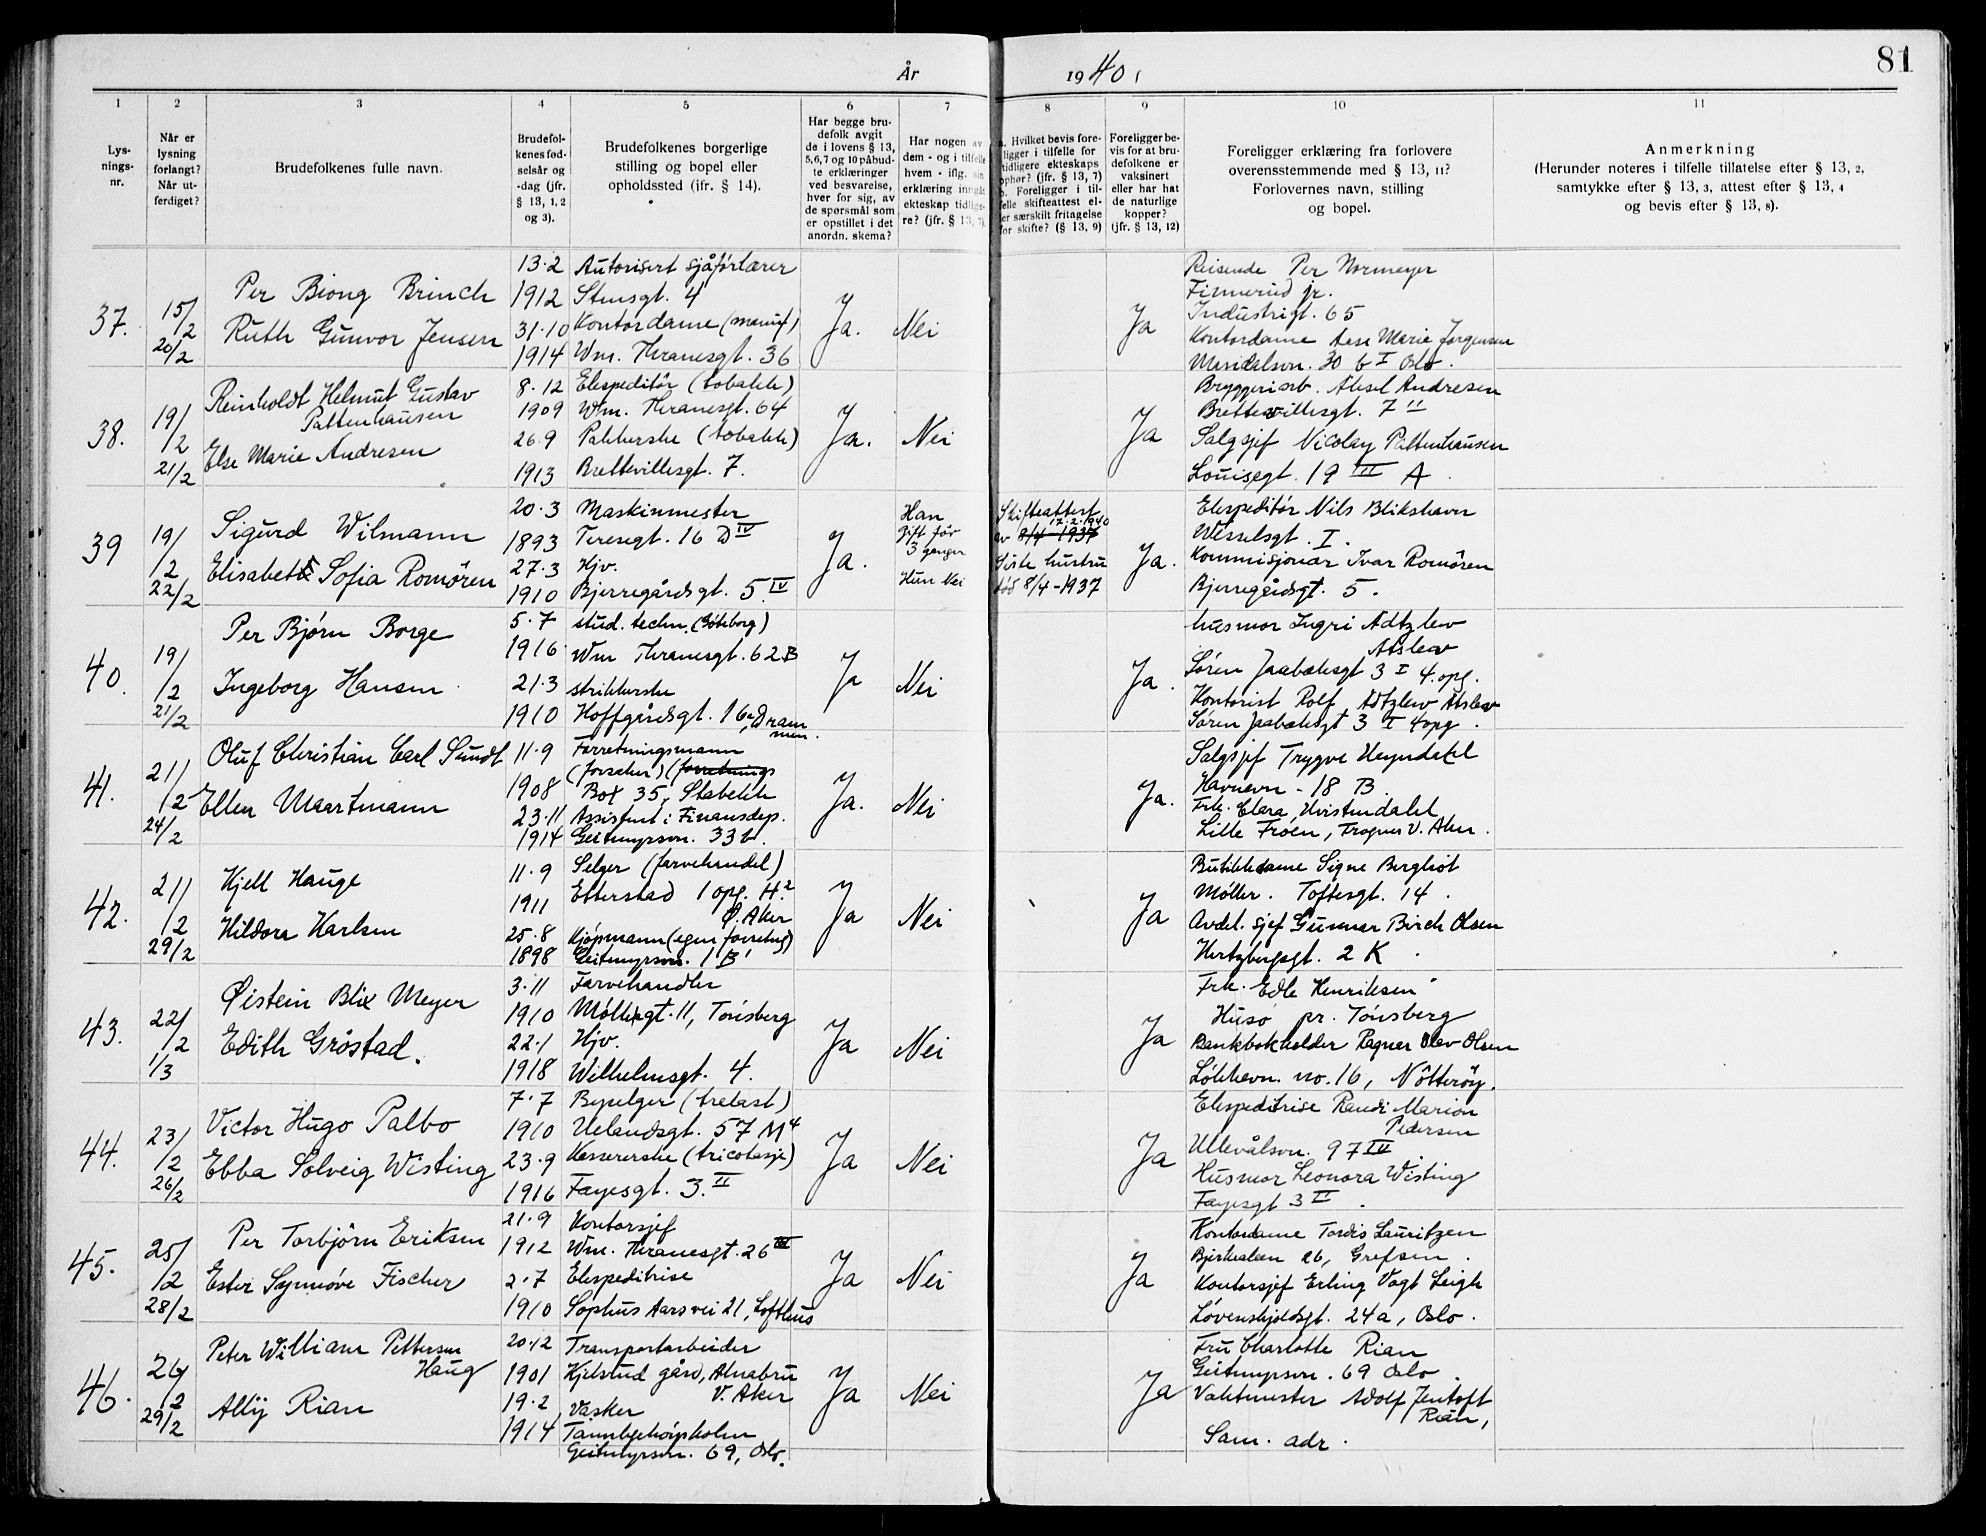 År 1940. 81
1 2 3 4 5 6 7 8 9 10 11
Lysningsnr.
Når er lysning forlangt? Når utferdiget?
Brudefolkenes fulle navn.
Brudefolkenes fødselsår og -dag (jfr. § 13, 1, 2 og 3).
Brudefolkenes borgerlige stilling og bopel eller opholdssted (jfr. § 14).
Har begge brudefolk avgit de i lovens § 13, 5,6,7 og 10 påbudte erklæringer ved besvarelse, hver for sig, av de spørsmål som er opstillet i det anordn. skema?
Har nogen av dem - og i tilfelle hvem - iflg. sin erklæring inngått ekteskap tidligere? (jfr. § 13, 7).
a. Hvilket bevis foreligger i tilfelle for tidligere ekteskaps ophør? (jfr. § 13, 7) b. Foreligger i tilfelle skifteattest eller særskilt fritagelse for skifte? (§ 13, 9)
Foreligger bevis for at brudefolkene er vaksinert eller har hat de naturlige kopper? (jfr. § 13, 12)
Foreligger erklæring fra forlovere overensstemmende med § 13, 11? Forlovernes navn, stilling og bopel.
Anmerkning
(Herunder noteres i tilfelle tillatelse efter § 13, 2, samtykke efter § 13, 3, attest efter § 13, 4 og bevis efter § 13, 8).
37.
15/2
20/2
Per Biong Brinch
Ruth Gunvor Jensen
13.2
1912
31.10
1914
Autorisert sjåførlærer
Stensgt. 4
Kontordame (manuf)
Wm. Thranesgt. 36
Ja.
Nei
Ja
Reisende Per Normeyer
Finnerud jr.
Industrigt. 65
Kontordame Aase Marie Jørgensen
Maridalsvn. 30 b I Oslo.
38.
19/2
21/2
Reinholdt Helmut Gustav
Paltenhausen
Else Marie Andresen
8.12
1909
26.9
1913
Ekspeditør (tobakk)
Wm. Thranesgt. 64
Pakkerske (tobakk)
Brettevillesgt. 7.
Ja.
Nei
Ja
Bryggeriarb. Aksel Andresen
Brettevillesgt. 7 II
Salgsjef Nicolay Paltenhausen
Louisegt. 19 III A
39
19/2
22/2
Sigurd Wilmann
Elisabeth Sofia Romören
20.3
1893
27.3
1910
Maskinmester
Teresegt. 16 D IV
Hjv.
Bjerregårdsgt. 5 IV
Ja.
Han
gift før
3 ganger
Hun Nei
Skifteattest
12.2.1940
av 8/4-1937
Siste hustru
død 8/4-1937
Ja.
Ekspeditör Nils Blikshavn
Wesselsgt. I.
Kommisjonær Ivar Romören
Bjerregårdsgt. 5.
40.
19/2
21/2
Per Bjørn Borge
Ingeborg Hansen
5.7
1916
21.3
1910
stud. techn. (Göteborg)
Wm Thranesgt. 62B
strikkerske
Hoffgårdsgt. 16, Drammen.
Ja
Nei
Ja.
husmor Ingri Adtzlew
Atslew
Sören Jaabæksgt 3 I 4. opg.
Kontorist Rolf Adtzlew Atslew
Sören Jaabæksgt 3 I 4 opg.
41.
21/2
24/2
Oluf Christian Carl Sundt
Ellen Maartmann
11.9
1908
23.11
1914
Forretningsmann
(forsker) (forretnings
Box 35, Stabekk
Assistent i Finansdep.
Geitmyrsvn. 33b.
Ja.
Nei
Ja.
Salgsjef Trygve Heyndahl
Havnevn - 18 B.
Frk. Clara Kvistendahl
Lille Frøen, Frogner V. Aker.
42.
21/2
29/2
Kjell Hauge
Hildora Karlsen
11.9
1911
25.8
1898
Selger (farvehandel)
Etterstad 1 opg. H.2
Ø. Aker
Kjøpmann (egen forretng)
Geitmyrsvn. 1 B
Ja
Nei
Ja
Butikkdame Signe Bergliot
Møller. Toftesgt. 14.
Avdel. sjef Gunnar Birch Olsen
Hertzbergsgt. 2 K.
43.
22/2
1/3
Øistein Blix Meyer
Edith Gröstad.
3.11
1910
22.1
1918
Farvehandler
Møllegt. 11, Tönsberg
Hjv.
Wilhelmsgt. 4.
Ja
Nei
Ja
Frk. Edle Henriksen
Husø pr. Tönsberg
Bankbokholder Ragnar Olav Olsen
Løkkevn. no. 16, Nötteröy.
44.
23/2
26/2
Victor Hugo Palbo
Ebba Solveig Wisting
7.7
1910
23.9
1916
Byselger (trelast)
Uelandsgt. 57 M4
Kassererske (tricotasje)
Fayesgt. 3. II
Ja
Nei
Ja
Ekspeditrise Randi Marion
Pedersen
Ullevålsvn. 97 IV.
Husmor Leonora Wisting
Fayesgt 3 II.
45.
25/2
28/2
Per Torbjörn Eriksen
Ester Synnöve Fischer
21.9
1912
2.7
1910
Kontorsjef
Wm. Thranesgt. 26 III
Ekspeditrise
Sophus Aarsvei 21, Lofthus
Ja
Nei
Ja
Kontordame Tordis Lauritzen
Bjerkealeen 26, Grefsen.
Kontorsjef Erling Vogt Leigh
Lövenskjoldsgt. 24a, Oslo.
46.
26/2
29/2
Peter William Pettersen
Haug
Ally Rian
20.12
1901
19.2
1914
Transportarbeider
Kjelsrud gård, Alnabru
V. Aker
Vasker
Geitmyrsvn. 69, Oslo.
Ja
Nei
Ja
Fru Charlotte Rian
Geitmyrsvn. 69 Oslo.
Vaktmester Adolf Jentoft
Rian,
Sam. adr.